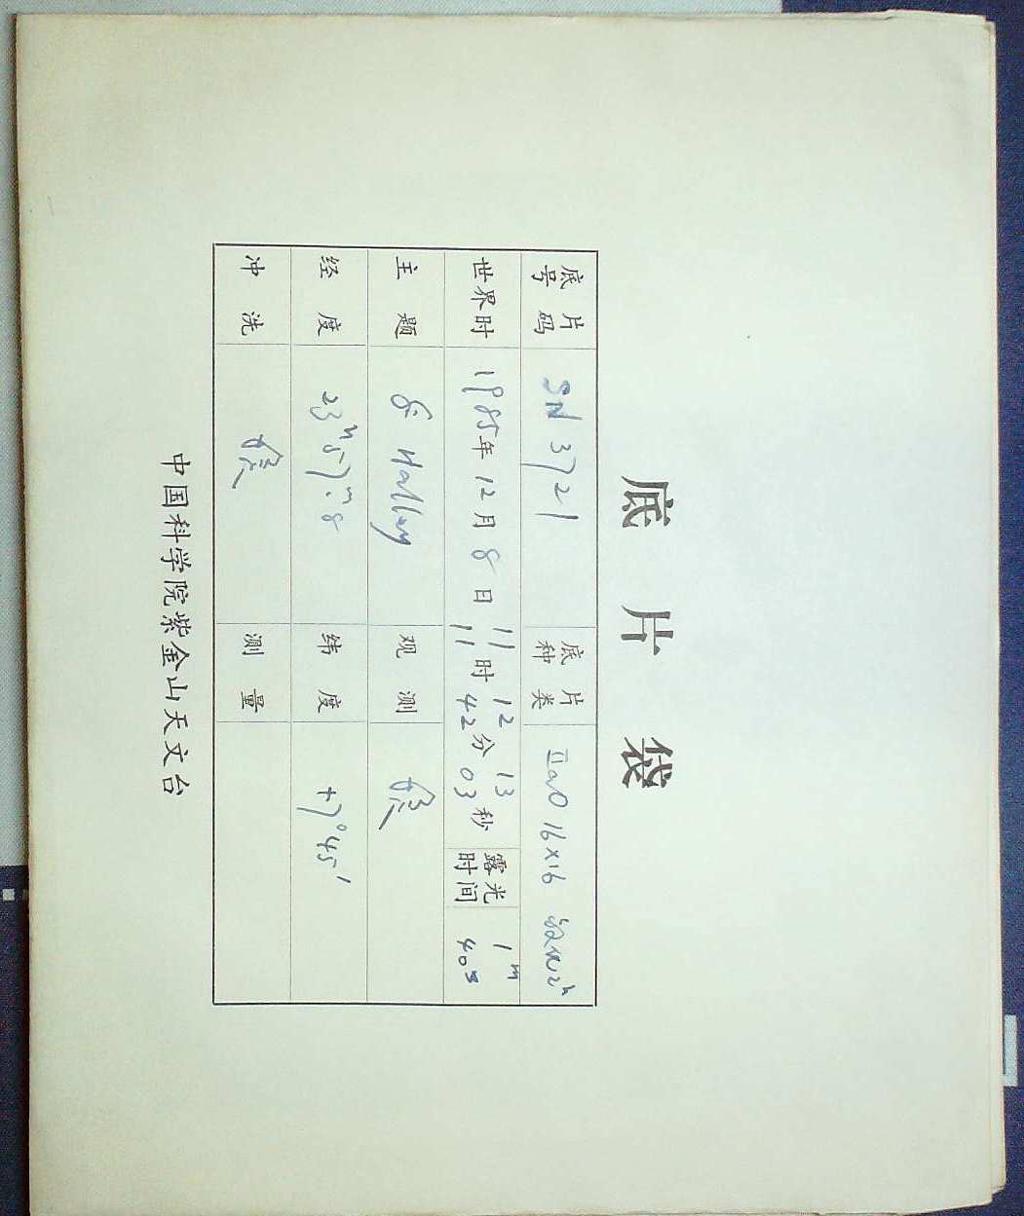 底 片 袋
底片号码 SN 3721 底片种类 IIaO 16×16 敏化2h
世界时 1985年12月8日 11时12分13秒 露光时间 1m
11 42 03 40s
主 题 & Halley 观 测
经 度 23h57m.8 纬 度 +7°45′
冲 洗 测 量
中国科学院紫金山天文台